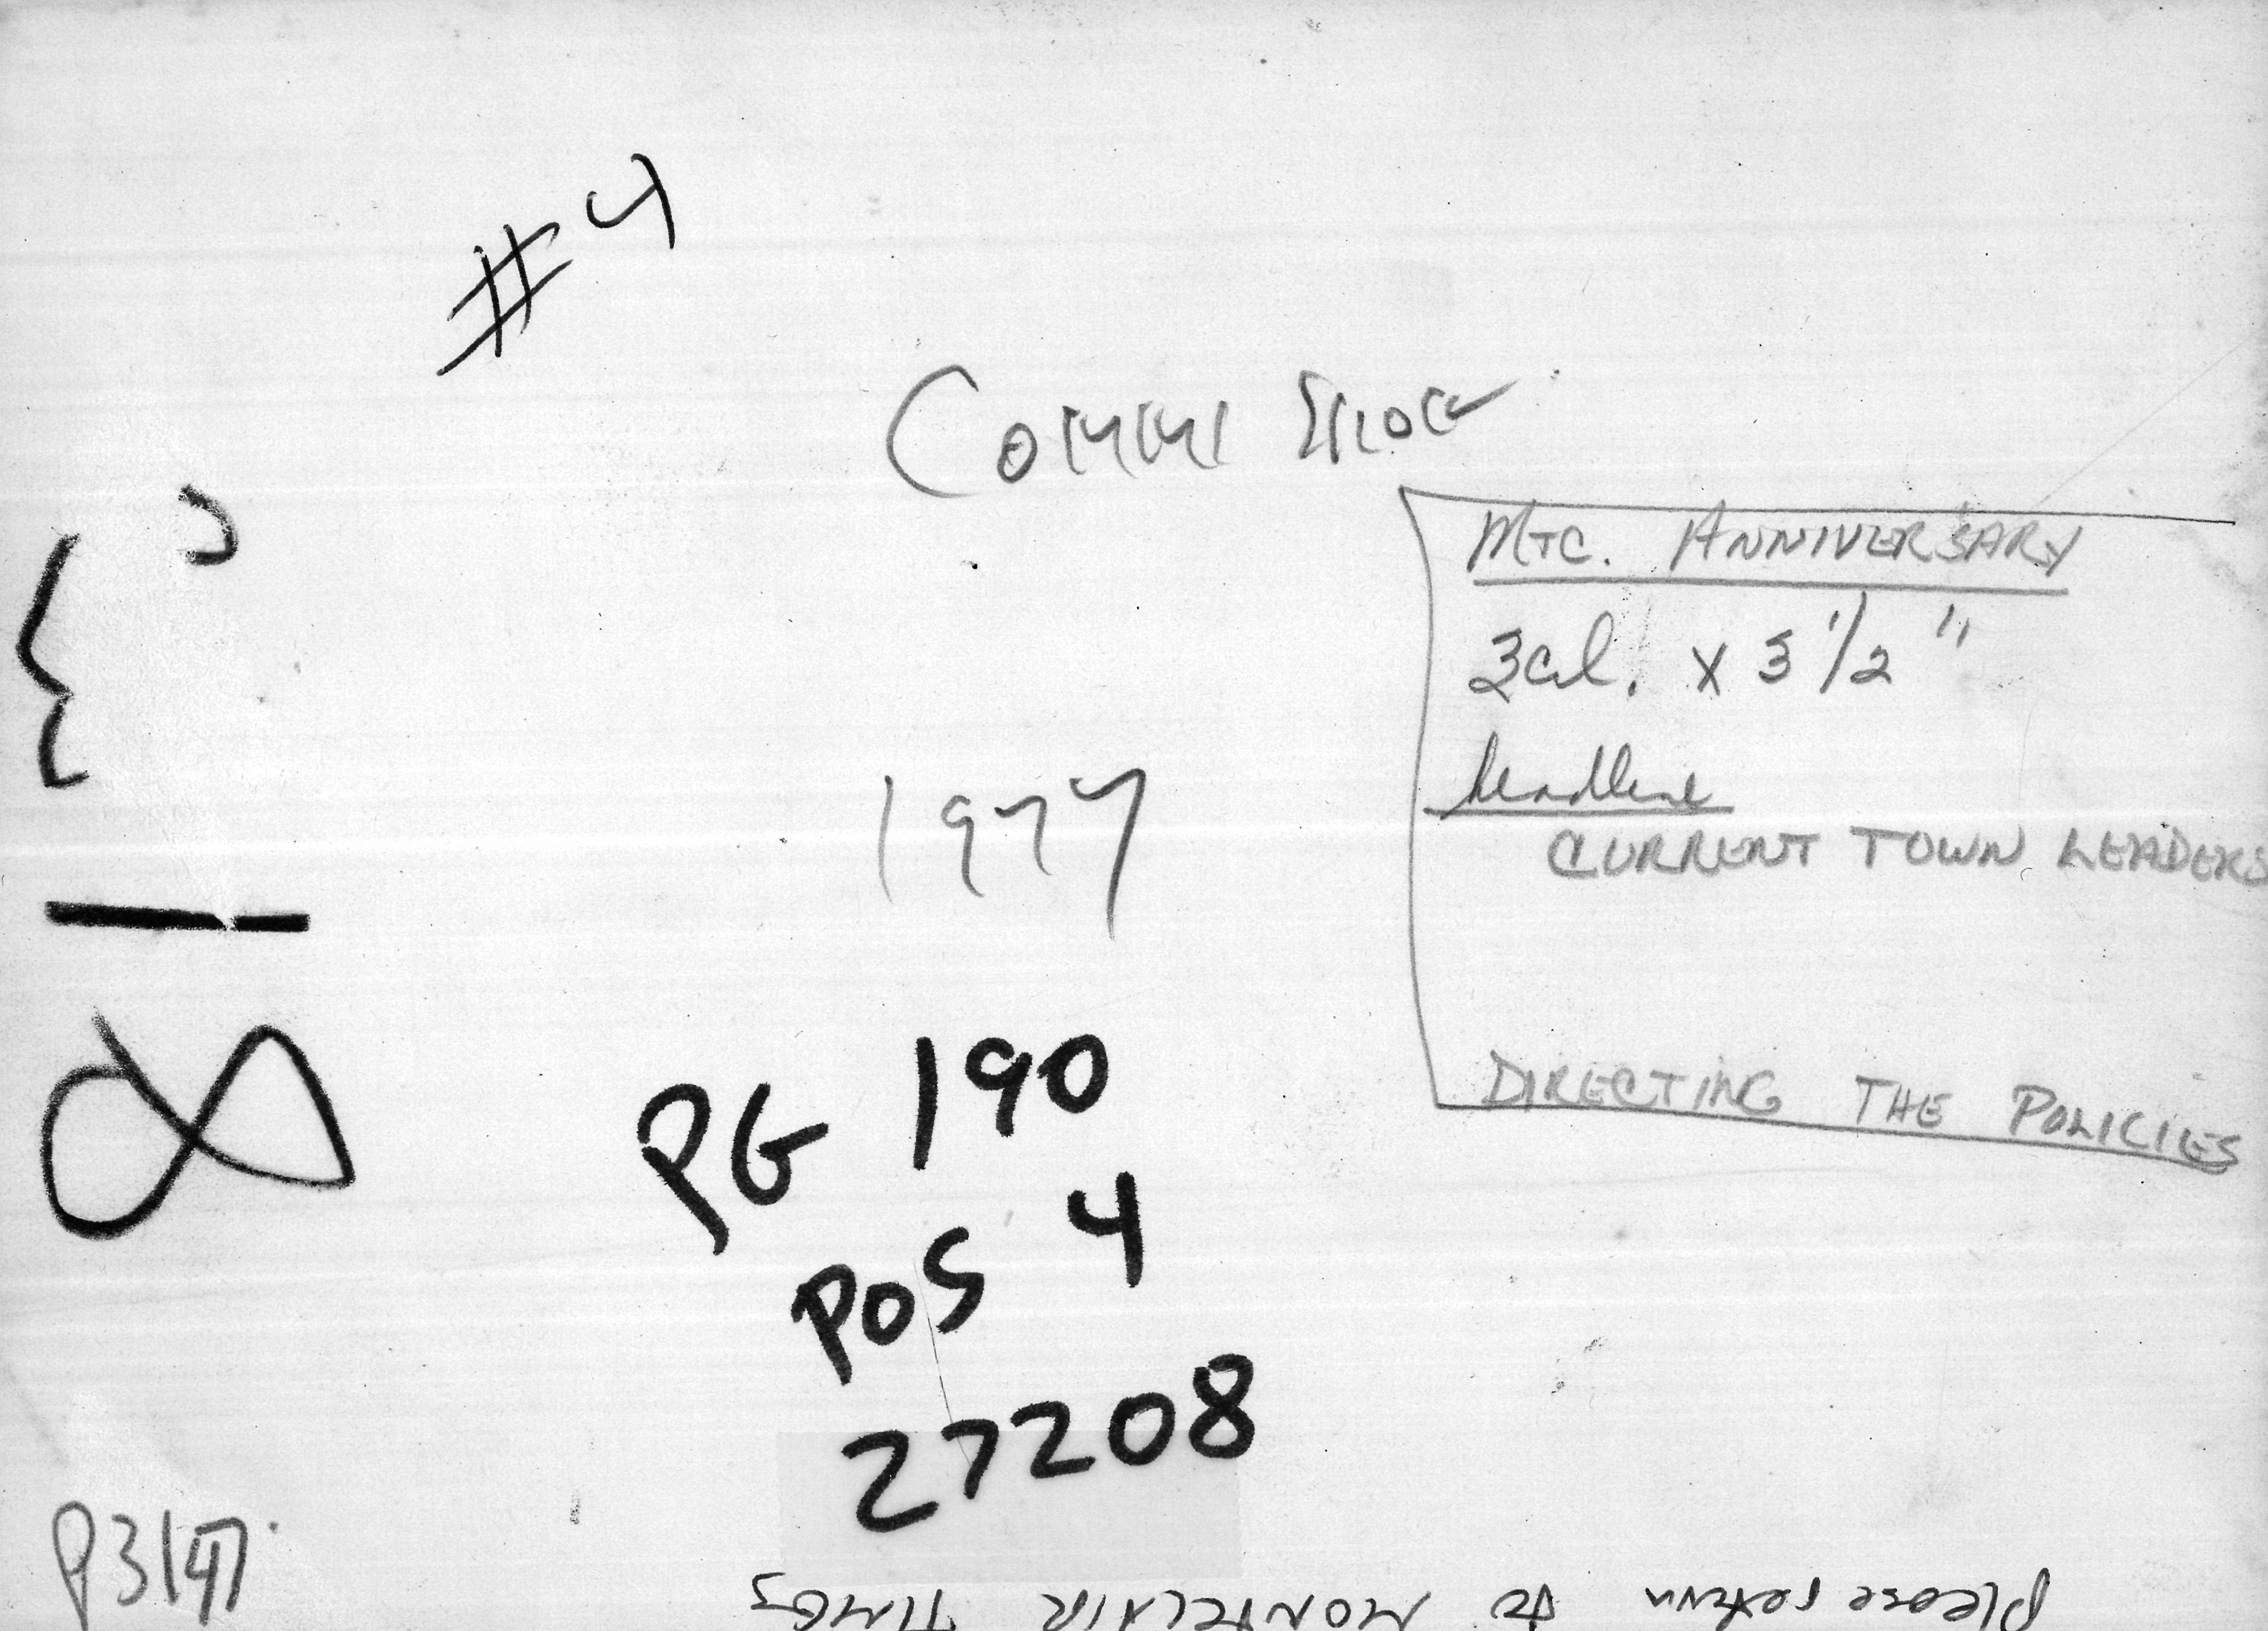 #4
Commission
Mtc. ANNIVERSARY
3 col. x 3 1/2 "
headline
CURRENT TOWN LEADERS
1977
DIRECTING THE POLICIES
PG 190
POS 4
27208
please return to MONTCLAIR TIMES